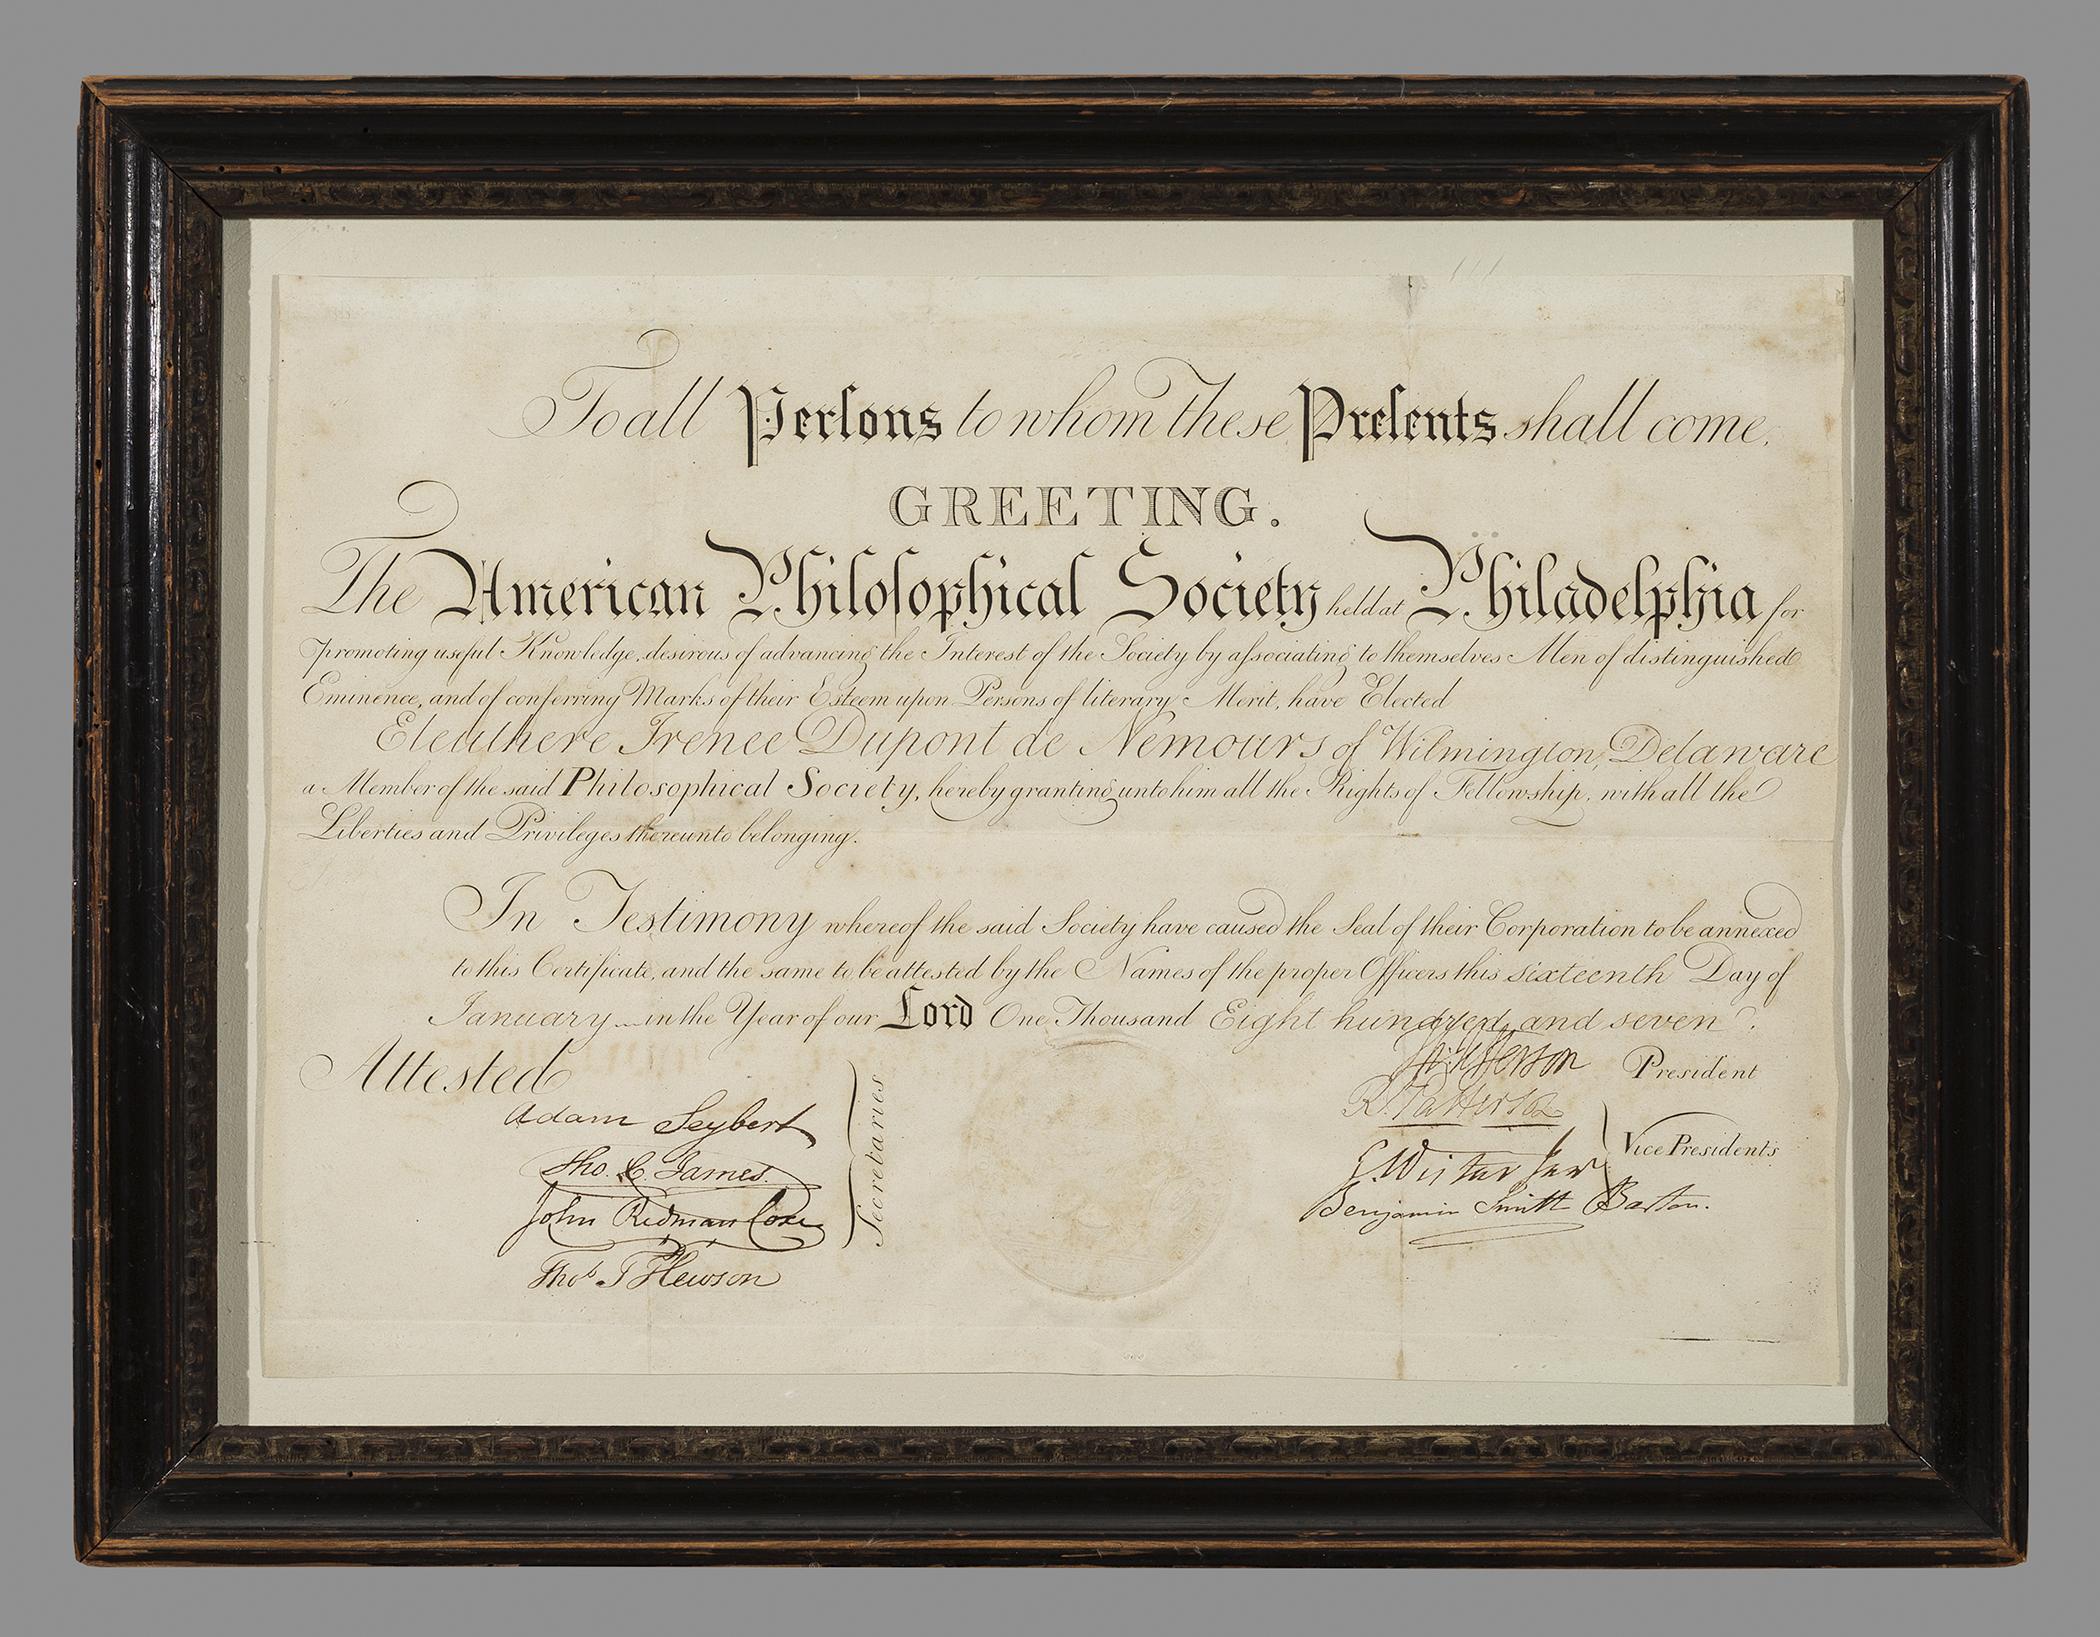 To all Perſons to whom These Preſents shall come,
GREETING.
The American Philoſophical Society held at Philadelphia for
promoting useful Knowledge, desirous of advancing the Interest of the Society by aſsociating to themselves Men of distinguished
Eminence, and of conferring Marks of their Esteem upon Persons of literary Merit, have Elected
Eleuthere Irenee Dupont de Nemours of Wilmington, Delaware
a Member of the said Philosophical Society, hereby granting unto him all the Rights of Fellowship, with all the
Liberties and Privileges thereunto belonging.
In Testimony whereof the said Society have caused the Seal of their Corporation to be annexed
to this Certificate, and the same to be attested by the Names of the proper Officers this sixteenth Day of
January in the Year of our Lord One Thousand Eight hundred and seven.
Attested
Adam Seybert
Tho. C. James.
John Redman Coxe
Thos. T Hewson
Secretaries
Th: Jefferson President
R. Patterson
C. Wistar Junr
Benjamin Smith Barton.
Vice Presidents